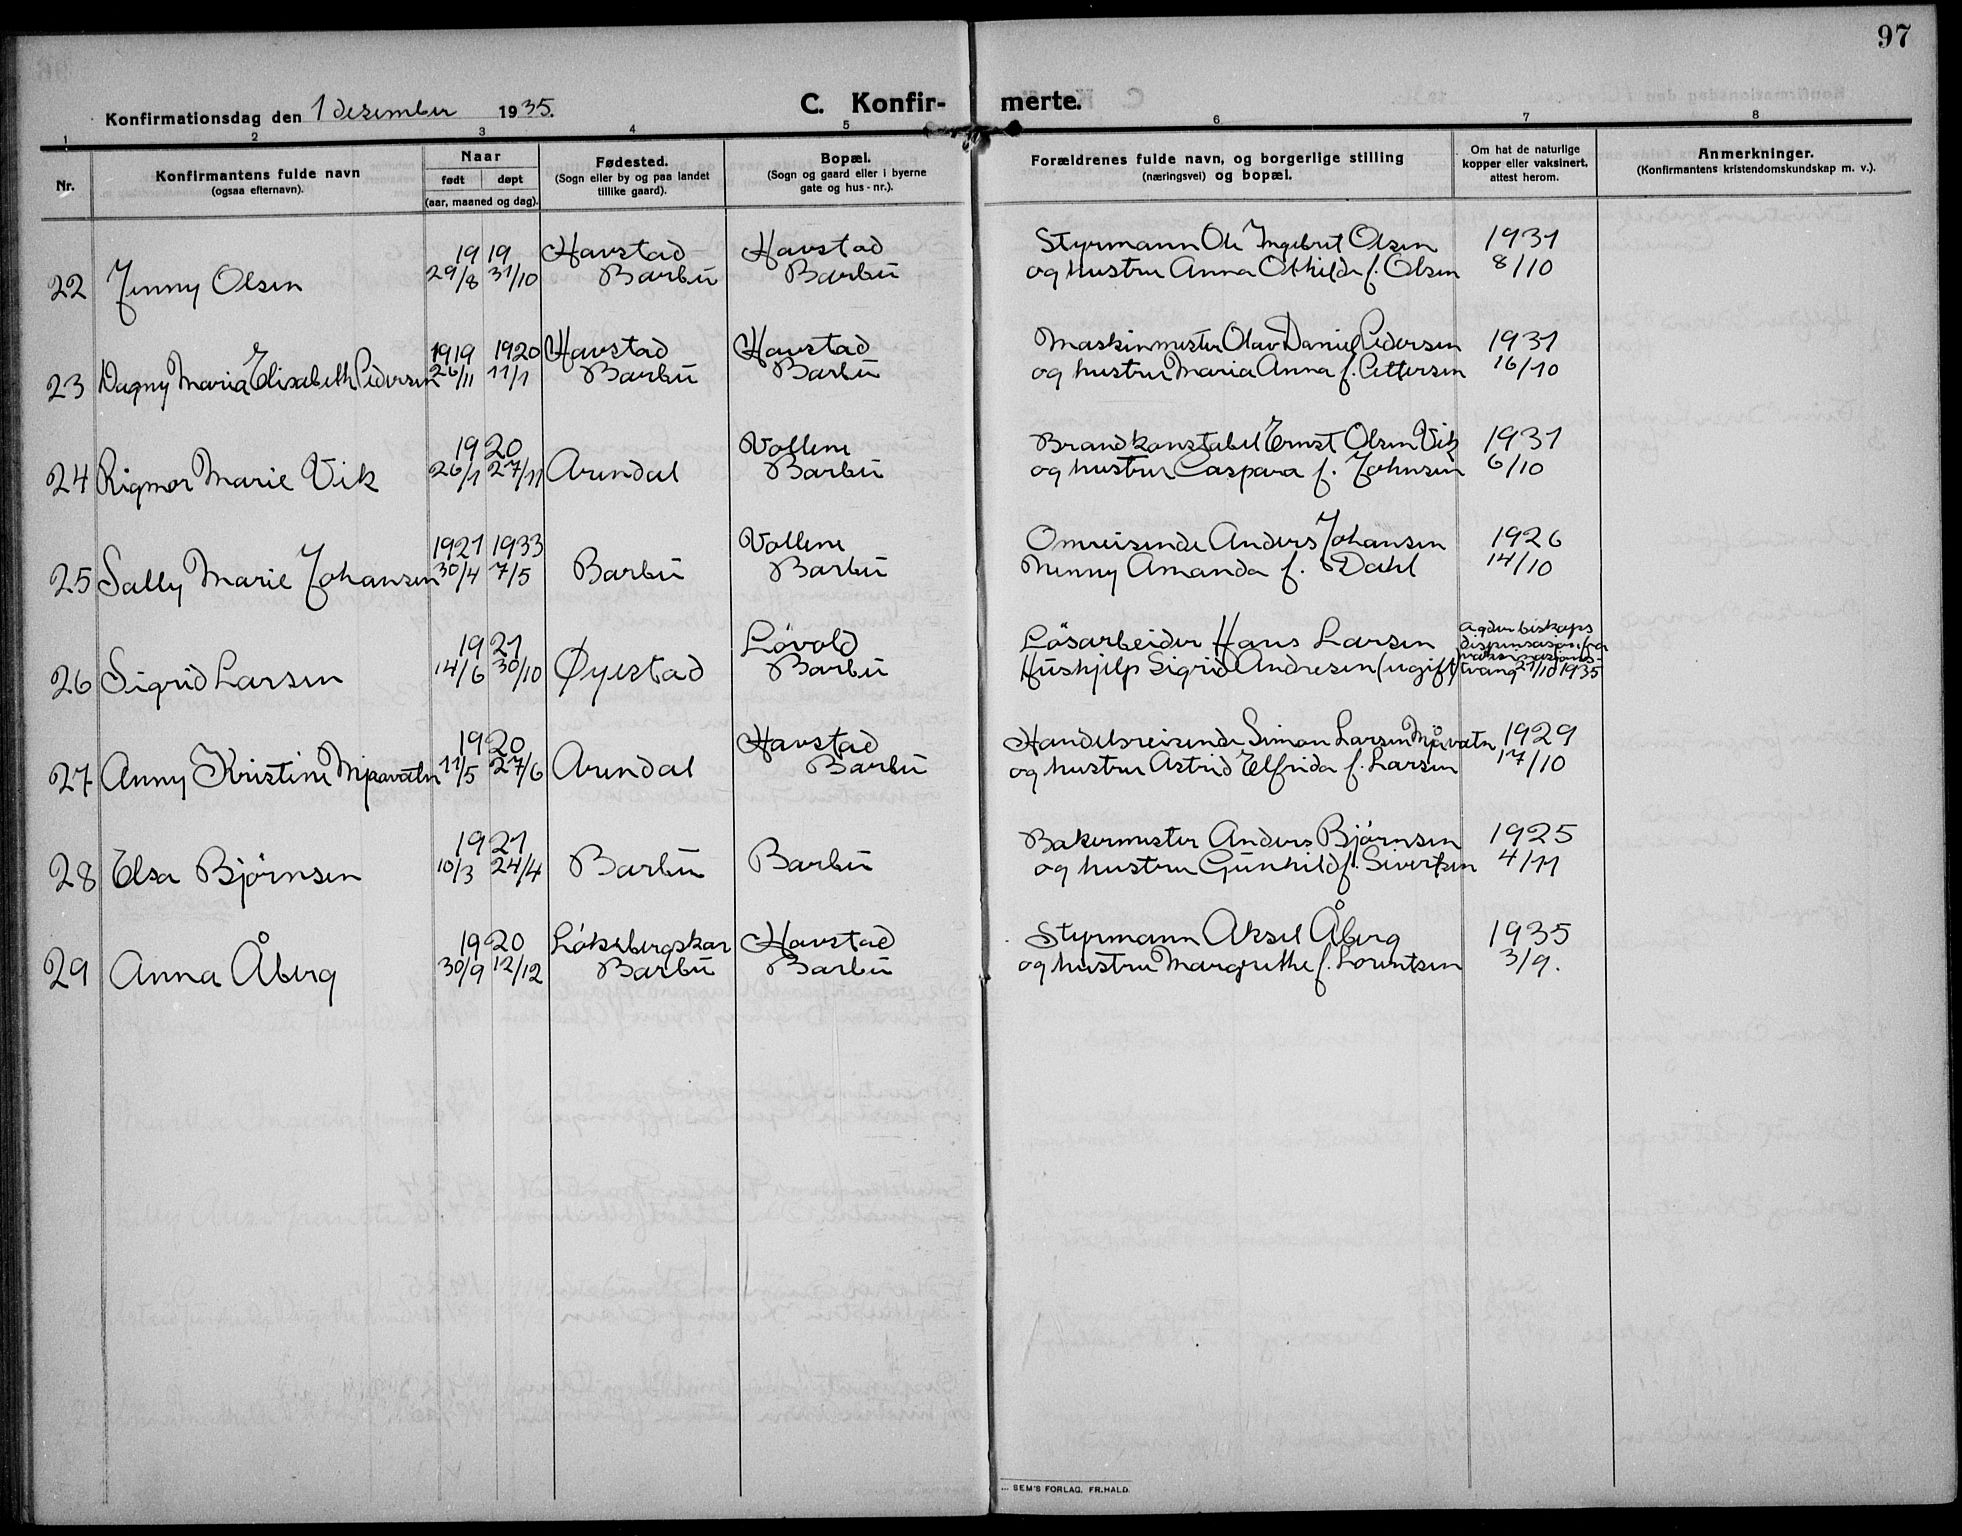 97
Konfirmationsdag den 1 desember 1935.
C. Konfir- merte.
1 2 3 4 5 6 7 8
Nr.
Konfirmantens fulde navn
(ogsaa efternavn).
Naar
født døpt
(aar, maaned og dag).
Fødested.
(Sogn eller by og paa landet
tillike gaard).
Bopæl.
(Sogn og gaard eller i byerne
gate og hus-nr.).
Forældrenes fulde navn, og borgerlige stilling
(næringsvei) og bopæl.
Om hat de naturlige
kopper eller vaksinert,
attest herom.
Anmerkninger.
(Konfirmantens kristendomskundskap m. v.).
19 19 Havstad Havstad Styrmann Ole Ingebret Olsen 1931
22 Jenny Olsen 29/8 31/10 Barbu Barbu og hustru Anna Othilde f. Olsen 8/10
1919 1920 Havstad Havstad Maskinmester Olav Daniel Pedersen 1931
23 Dagny Maria Elisabeth Pedersen 26/11 11/1 Barbu Barbu og hustru Maria Anna f. Pettersen 16/10
19 20 Vollene Brandkonstabel Ernst Olsen Vik 1931
24 Rigmor Marie Vik 26/1 27/11 Arendal Barbu og hustru Caspara f. Johnsen 6/10
1921 1933 Vollene Omreisende Anders Johansen 1926
25 Sally Marie Johansen 30/4 7/5 Barbu Barbu Nenny Amanda f. Dahl 14/10
19 21 Løvold Løsarbeider Hans Larsen Agder biskops
dispensasjon fra
26 Sigrid Larsen 14/6 30/10 Øyestad Barbu Hushjelp Sigrid Andresen (ugift) tvang 21/10 1935
19 20 Havstad Handelsreisende Simon Larsen Mjåvatn 1929
27 Anny Kristine Mjaavatn 11/5 27/6 Arendal Barbu og hustru Astrid Elfrida f. Larsen 17/10
19 21 Bakermester Anders Bjørnsen 1925
28 Elsa Bjørnsen 10/3 24/4 Barbu Barbu og hustru Gunhild f. Sivertsen 4/11
19 20 Løksbergskar Havstad Styrmann Aksel Åberg 1935
29 Anna Åberg 30/9 12/12 Barbu Barbu og hustru Margrethe f. Lorentsen 3/9.
SEM'S FORLAG, FR.HALD.